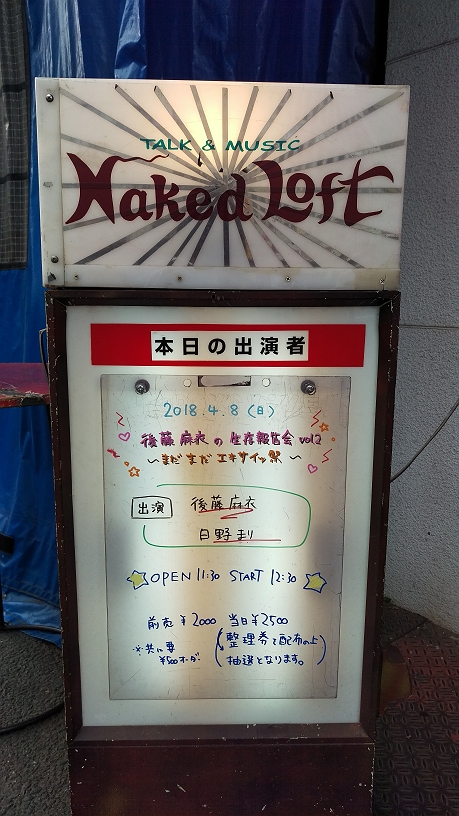 TALK & MUSIC
Naked Loft
本日の出演者
2018.4.8(日)
後藤麻衣の生存報告会 vol2
〜まだまだエキサイッ祭〜
出演
後藤麻衣
日野まり
OPEN 11:30 START 12:30
前売¥2000 当日¥2500
※共に要
¥500オーダー
(整理券を配布の上
抽選となります。)